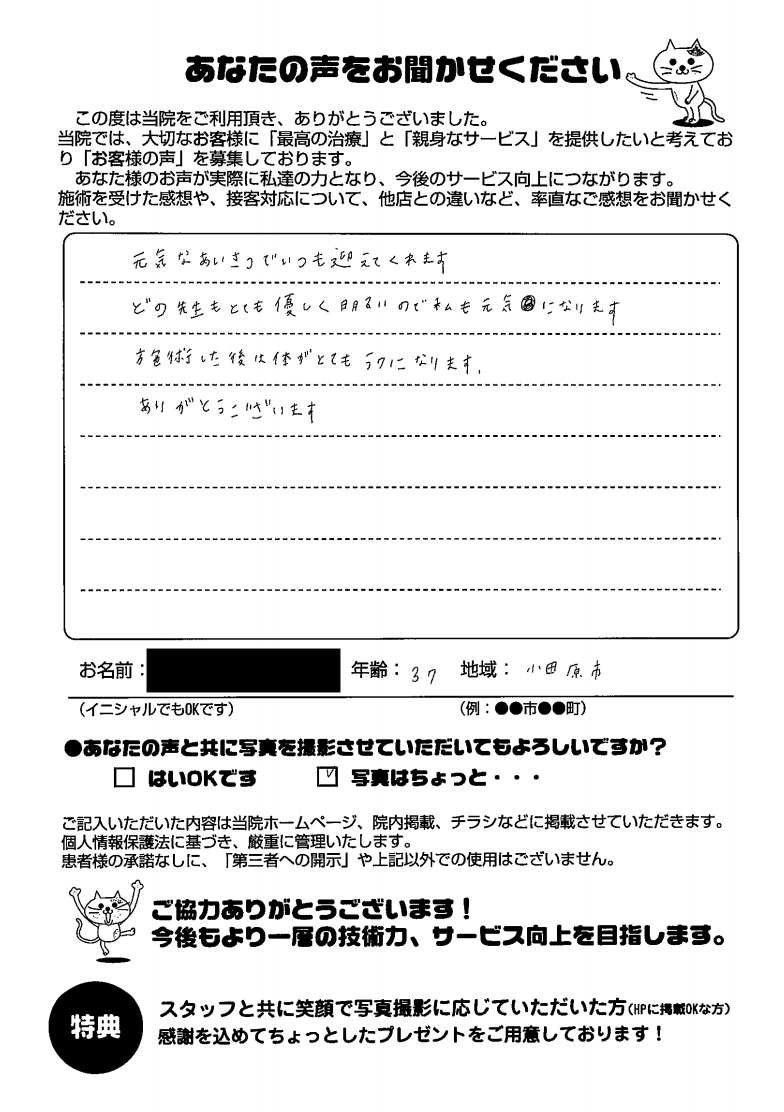 あなたの声をお聞かせください
この度は当院をご利用頂き、ありがとうございました。
当院では、大切なお客様に「最高の治療」と「親身なサービス」を提供したいと考えてお
り「お客様の声」を募集しております。
あなた様のお声が実際に私達の力となり、今後のサービス向上につながります。
施術を受けた感想や、接客対応について、他店との違いなど、率直なご感想をお聞かせく
ださい。
元気なあいさつでいつも迎えてくれます
どの先生もとても優しく明るいので私も元気になります
施術した後は体がとてもラクになります。
ありがとうございます
お名前： 年齢：37 地域：小田原市
（イニシャルでもOKです） （例：●●市●●町）
●あなたの声と共に写真を撮影させていただいてもよろしいですか？
□ はいOKです ☑ 写真はちょっと・・・
ご記入いただいた内容は当院ホームページ、院内掲載、チラシなどに掲載させていただきます。
個人情報保護法に基づき、厳重に管理いたします。
患者様の承諾なしに、「第三者への開示」や上記以外での使用はございません。
ご協力ありがとうございます！
今後もより一層の技術力、サービス向上を目指します。
特典
スタッフと共に笑顔で写真撮影に応じていただいた方（HPに掲載OKな方）
感謝を込めてちょっとしたプレゼントをご用意しております！